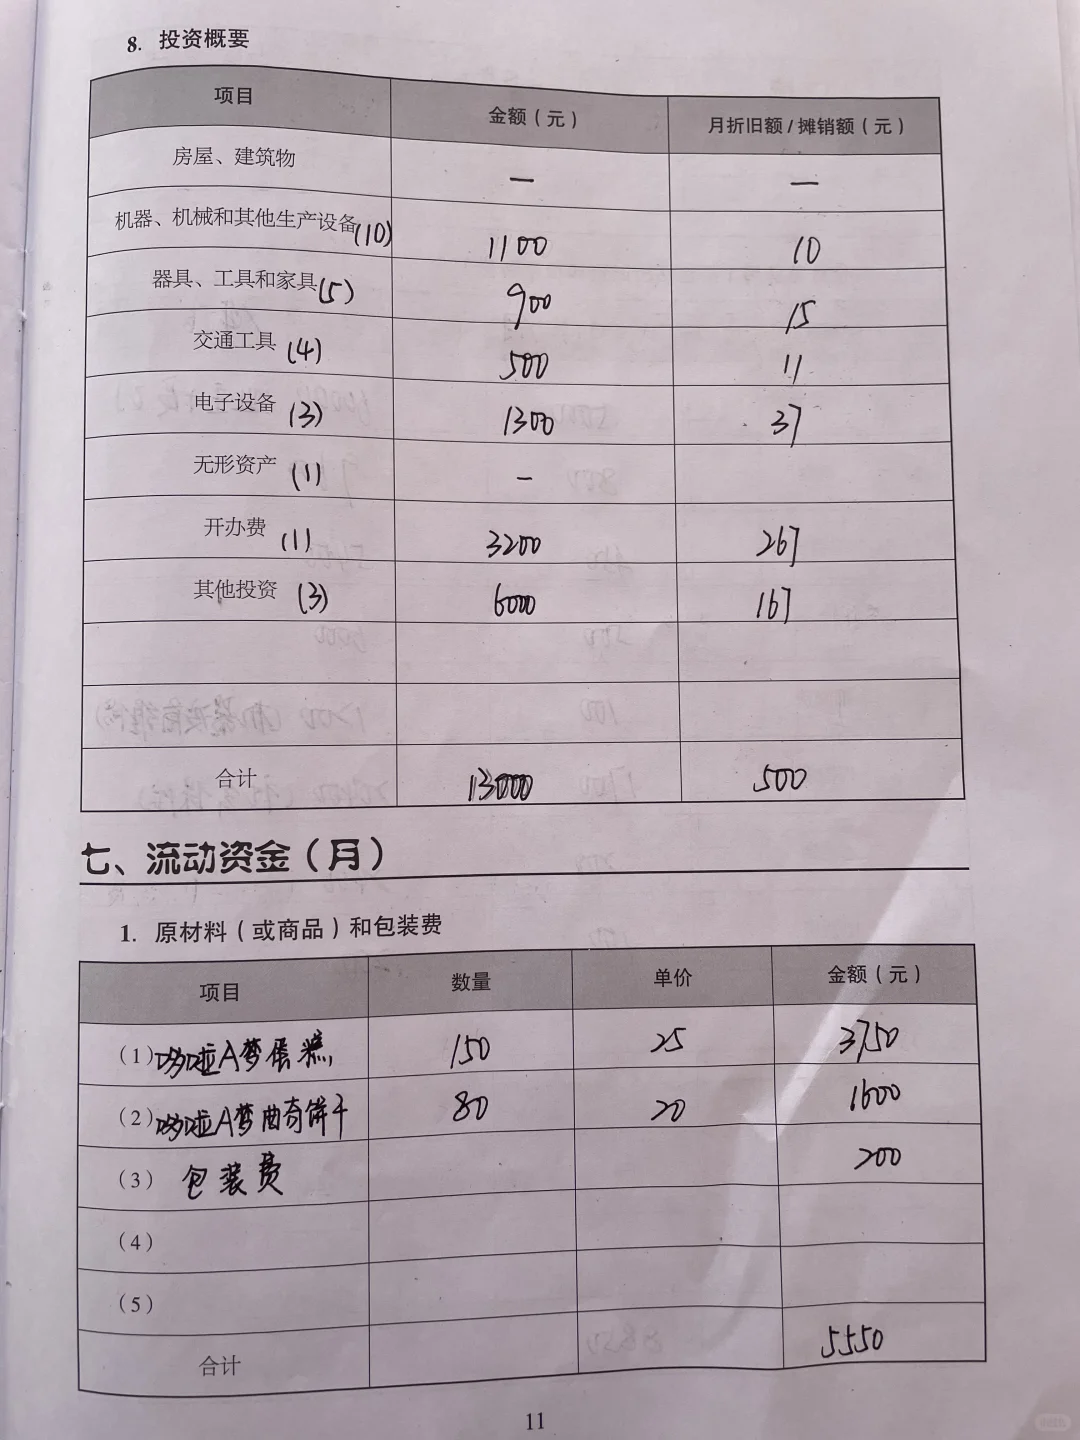 8. 投资概要
项目 金额（元） 月折旧额/摊销额（元）
房屋、建筑物 — —
机器、机械和其他生产设备(10) 1100 10
器具、工具和家具(5) 900 15
交通工具(4) 500 11
电子设备(3) 1300 37
无形资产(1) —
开办费(1) 3200 267
其他投资(3) 6000 167
合计 13000 500
七、流动资金（月）
1. 原材料（或商品）和包装费
项目 数量 单价 金额（元）
（1）哆啦A梦蛋糕 150 25 3750
（2）哆啦A梦曲奇饼干 80 20 1600
（3）包装费 200
（4）
（5）
合计 5550
11